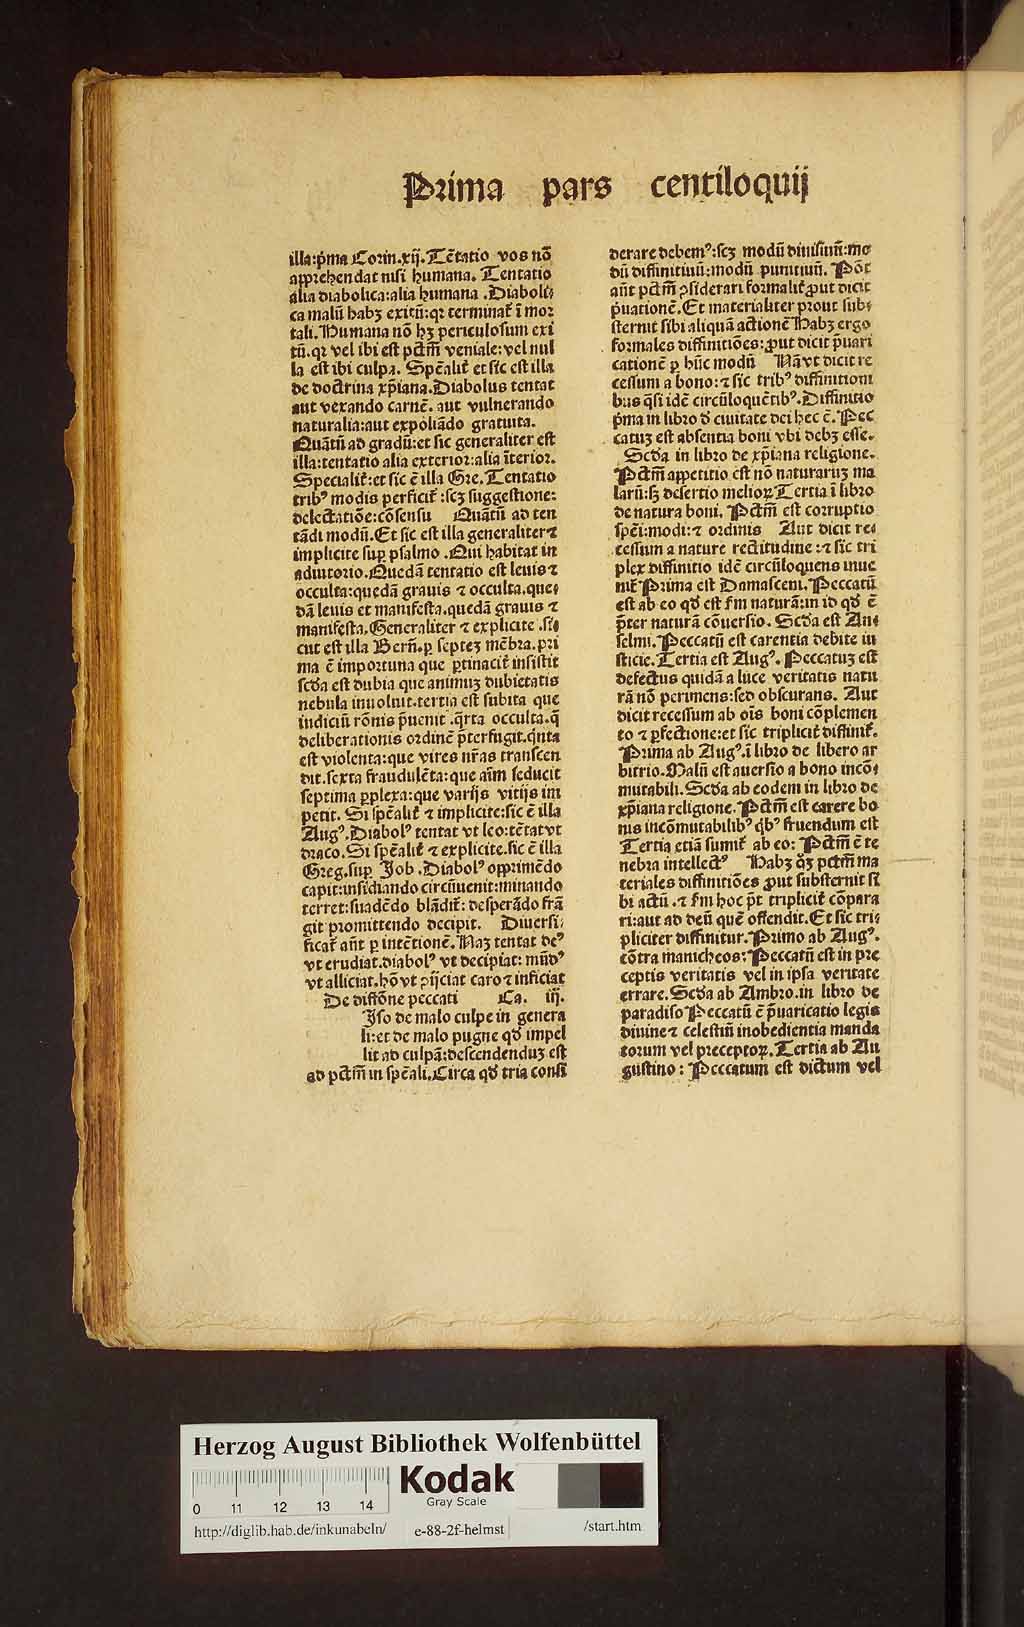 Prima pars centiloquij
illa:p̄ma Corin.xij. Tētatio vos nō
apprehendat nisi humana. Tentatio
alia diabolica:alia humana .Diaboli⸗
ca malū habꝫ exitū:qꝛ terminat̉ ī moꝛ
tali. Humana nō hꝫ periculosum exi
tū.qꝛ vel ibi est pctm̄ veniale:vel nul
la est ibi culpa. Spēalit̉ et sic est illa
de doctrina xp̄iana.Diabolus tentat
aut vexando carnē. aut vulnerando
naturalia:aut expoliādo gratuita.
Quātū ad gradū:et sic generaliter est
illa:tentatio alia exterioꝛ:alia īterioꝛ.
Specialit̉:et sic ē illa Gre. Tentatio
tribꝰ modis perficit̉ :scꝫ suggestione:
delectatiōe:cōsensu Quātū ad ten
tādi modū. Et sic est illa generaliter ⁊
implicite suꝑ psalmo .Qui habitat in
adiutorio.Quedā tentatio est leuis ⁊
occulta:quedā grauis ⁊ occulta.que⸗
dā leuis et manifesta.quedā grauis ⁊
manifesta.Generaliter ⁊ explicite .si⸗
cut est illa Bern̄.ꝑ septeꝫ mēbra.pꝛi
ma ē importuna que ꝑtinacit̉ insistit
scd̄a est dubia que animuꝫ dubietatis
nebula inuoluit.tertia est subita que
iudiciū rōnis p̄uenit .q̄rta occulta.q̄
deliberationis ordinē p̄terfugit.q̄nta
est violenta:que vires nr̄as transcen
dit.sexta fraudulēta:que aīm seducit
septima ꝑplexa:que varijs vitijs im
petit. Si spēalit̉ ⁊ implicite:sic ē illa
Augꝰ.Diabolꝰ tentat vt leo:tētat vt
draco. Si spēalit̉ ⁊ explicite.sic ē illa
Greg.suꝑ Job .Diabolꝰ opprimēdo
capit:insidiando circūuenit:minando
terret:suadēdo blādit̉: desperādo frā
git promittendo decipit. Diuersi⸗
ficat̉ aūt ꝑ intētionē. Naꝫ tentat deꝰ
vt erudiat.diabolꝰ vt decipiat: mūdꝰ
vt alliciat.hō vt ꝯijciat caro ⁊ inficiat
De diffōne peccati Ca. iij.
Jso de malo culpe in genera
li:et de malo pugne qd̄ impel
lit ad culpā:descendenduꝫ est
ad pctm̄ in spēali.Circa qd̄ tria consi
derare debemꝰ:scꝫ modū diuisiuū:mo
dū diffinitiuū:modū punitiuū. Pōt
aūt pctm̄ ꝯsiderari formalit̉ ꝓut dicit
p̄uationē. Et materialiter prout sub⸗
sternit sibi aliquā actionē Habꝫ ergo
formales diffinitiōes: ꝓut dicit p̄uari
cationē ꝑ hūc modū Nā vt dicit re
cessum a bono: ⁊ sic tribꝰ diffinitioni
bus q̄si idē circūloquētibꝰ. Diffinitio
p̄ma in libro d̄ ciuitate dei hec ē. Pec
catuꝫ est absentia boni vbi debꝫ esse.
Scd̄a in libro de xp̄iana religione.
Pctm̄ appetitio est nō naturaruꝫ ma
larū:sꝫ desertio melioꝝ Tertia ī libro
de natura boni. Pctm̄ est corruptio
spēi:modi: ⁊ ordinis Aut dicit re⸗
cessum a nature rectitudine :⁊ sic tri
plex diffinitio idē circūloquens inue
nit̉ Prima est Damasceni. Peccatū
est ab eo qd̄ est fm̄ naturā:in id qd̄ ē
p̄ter naturā cōuersio. Scd̄a est An⸗
selmi. Peccatū est carentia debite iu
sticie. Tertia est Augꝰ. Peccatuꝫ est
defectus quidā a luce veritatis natu
rā nō perimens:sed obscurans. Aut
dicit recessum ab oīs boni cōplemen
to ⁊ ꝑfectione:et sic triplicit̉ diffinit̉.
Prima ab Augꝰ.ī libro de libero ar
bitrio. Malū est auersio a bono incō⸗
mutabili. Scd̄a ab eodem in libro de
xp̄iana religione. Pctm̄ est carere bo
nis incōmutabilibꝰ q̇bꝰ fruendum est
Tertia etiā sumit̉ ab eo: Pctm̄ ē te
nebra intellectꝰ Habꝫ q̄ꝫ pctm̄ ma
teriales diffinitiōes ꝓut substernit si
bi actū .⁊ fm̄ hoc p̄t triplicit̉ cōpara
ri:aut ad deū quē offendit. Et sic tri⸗
pliciter diffinitur. Primo ab Augꝰ.
cōtra manicheos: Peccatū est in pre
ceptis veritatis vel in ipsa veritate
errare. Scd̄a ab Ambro.in libro de
paradiso Peccatū ē p̄uaricatio legis
diuine ⁊ celestiū inobedientia manda
torum vel preceptoꝝ. Tertia ab Au
gustino: Peccatum est dictum vel
Herzog August Bibliothek Wolfenbüttel
Kodak
Gray Scale
0 11 12 13 14
http://diglib.hab.de/inkunabeln/ e-88-2f-helmst /start.htm